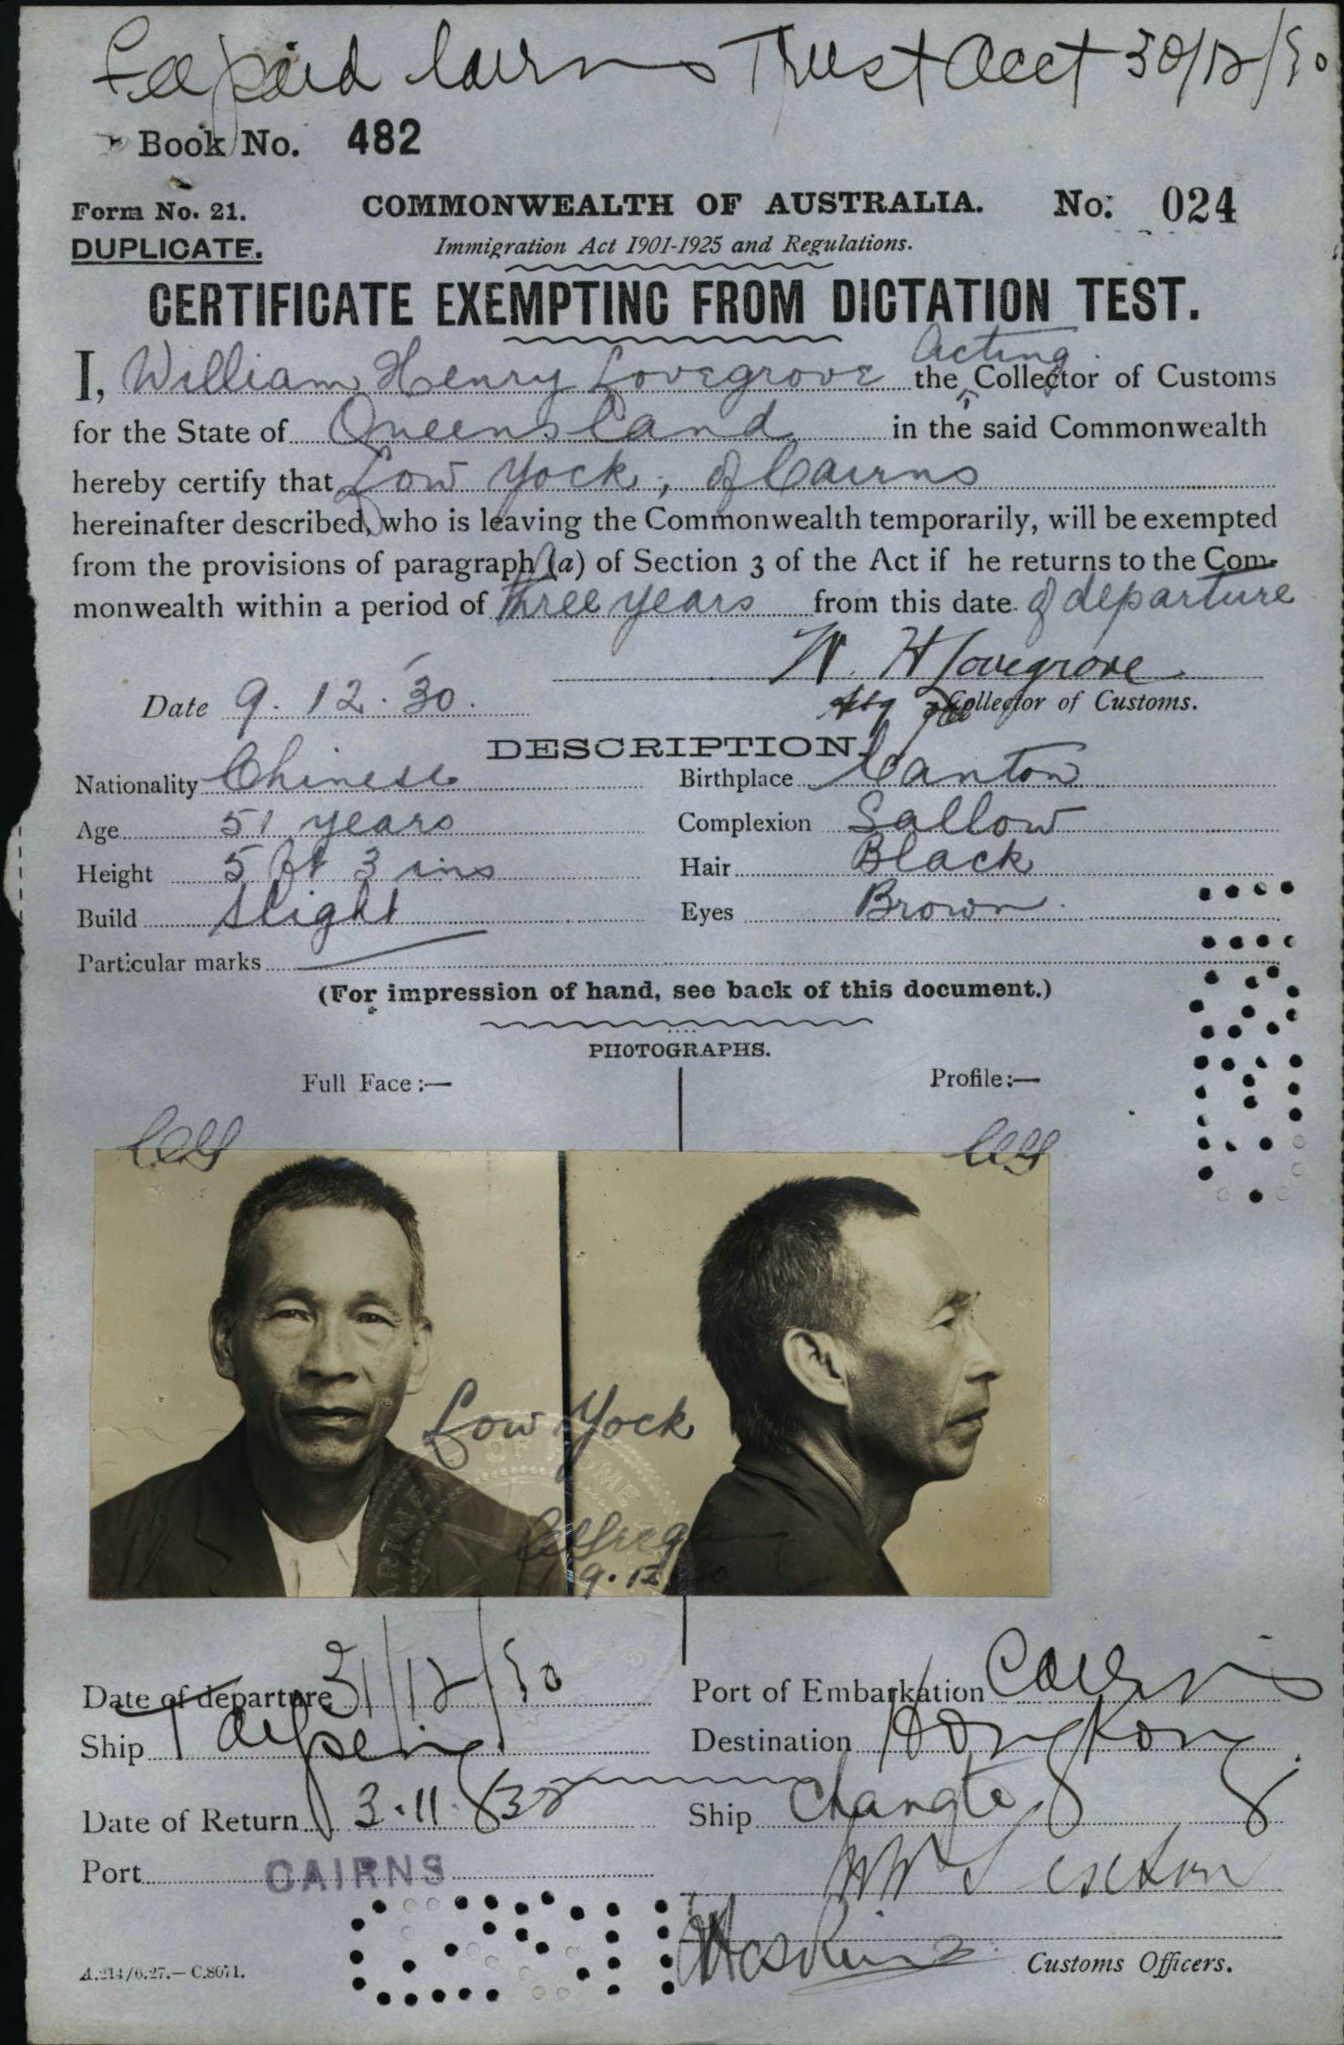 Fee paid Cairns Trust Acct 30/12/30
Book No. 482
Form No. 21.
COMMONWEALTH OF AUSTRALIA.
No. 024
DUPLICATE.
Immigration Act 1901-1925 and Regulations.
CERTIFICATE EXEMPTING FROM DICTATION TEST.
Acting
I, William Henry Lovegrove the Collector of Customs
for the State of Queensland in the said Commonwealth
hereby certify that Low Yock, of Cairns
hereinafter described, who is leaving the Commonwealth temporarily, will be exempted
from the provisions of paragraph (a) of Section 3 of the Act if he returns to the Com-
monwealth within a period of three years from this date of departure
W. H Lovegrove
Date 9.12.30. Collector of Customs.
DESCRIPTION.
Nationality Chinese Birthplace Canton
Age 51 years Complexion Sallow
Height 5 ft 3 ins Hair Black
Build Slight Eyes Brown
Particular marks
(For impression of hand, see back of this document.)
PHOTOGRAPHS.
Full Face:— Profile:—
Low Yock
9.12.30
Date of departure 31/12/30 Port of Embarkation Cairns
Ship Taiping Destination Hong Kong
Date of Return 3.11.32 Ship Changte
Port CAIRNS
A.214/6.27.—C.8071. Customs Officers.